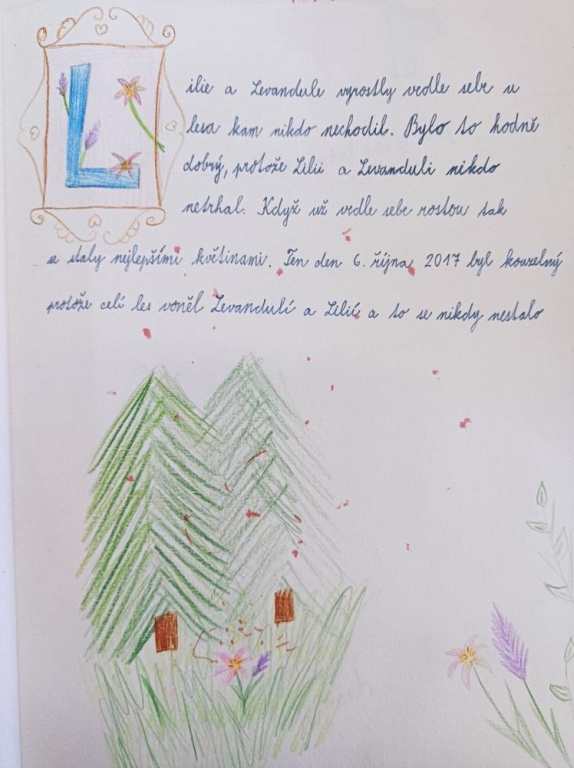 Lilie a Levandule vyrostly vedle sebe u
lesa kam nikdo nechodil. Bylo to hodně
dobrý, protože Lilii a Levanduli nikdo
netrhal. Když už vedle sebe rostou tak
se staly nejlepšími květinami. Ten den 6. října, 2017 byl kouzelný
protože celí les voněl Levandulí a Lilií a to se nikdy nestalo